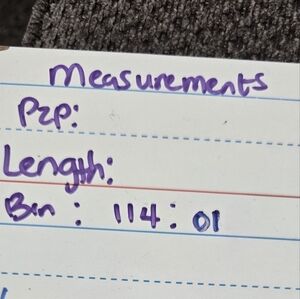 Measurements
P2P:
Length:
Bin : 114 : 01